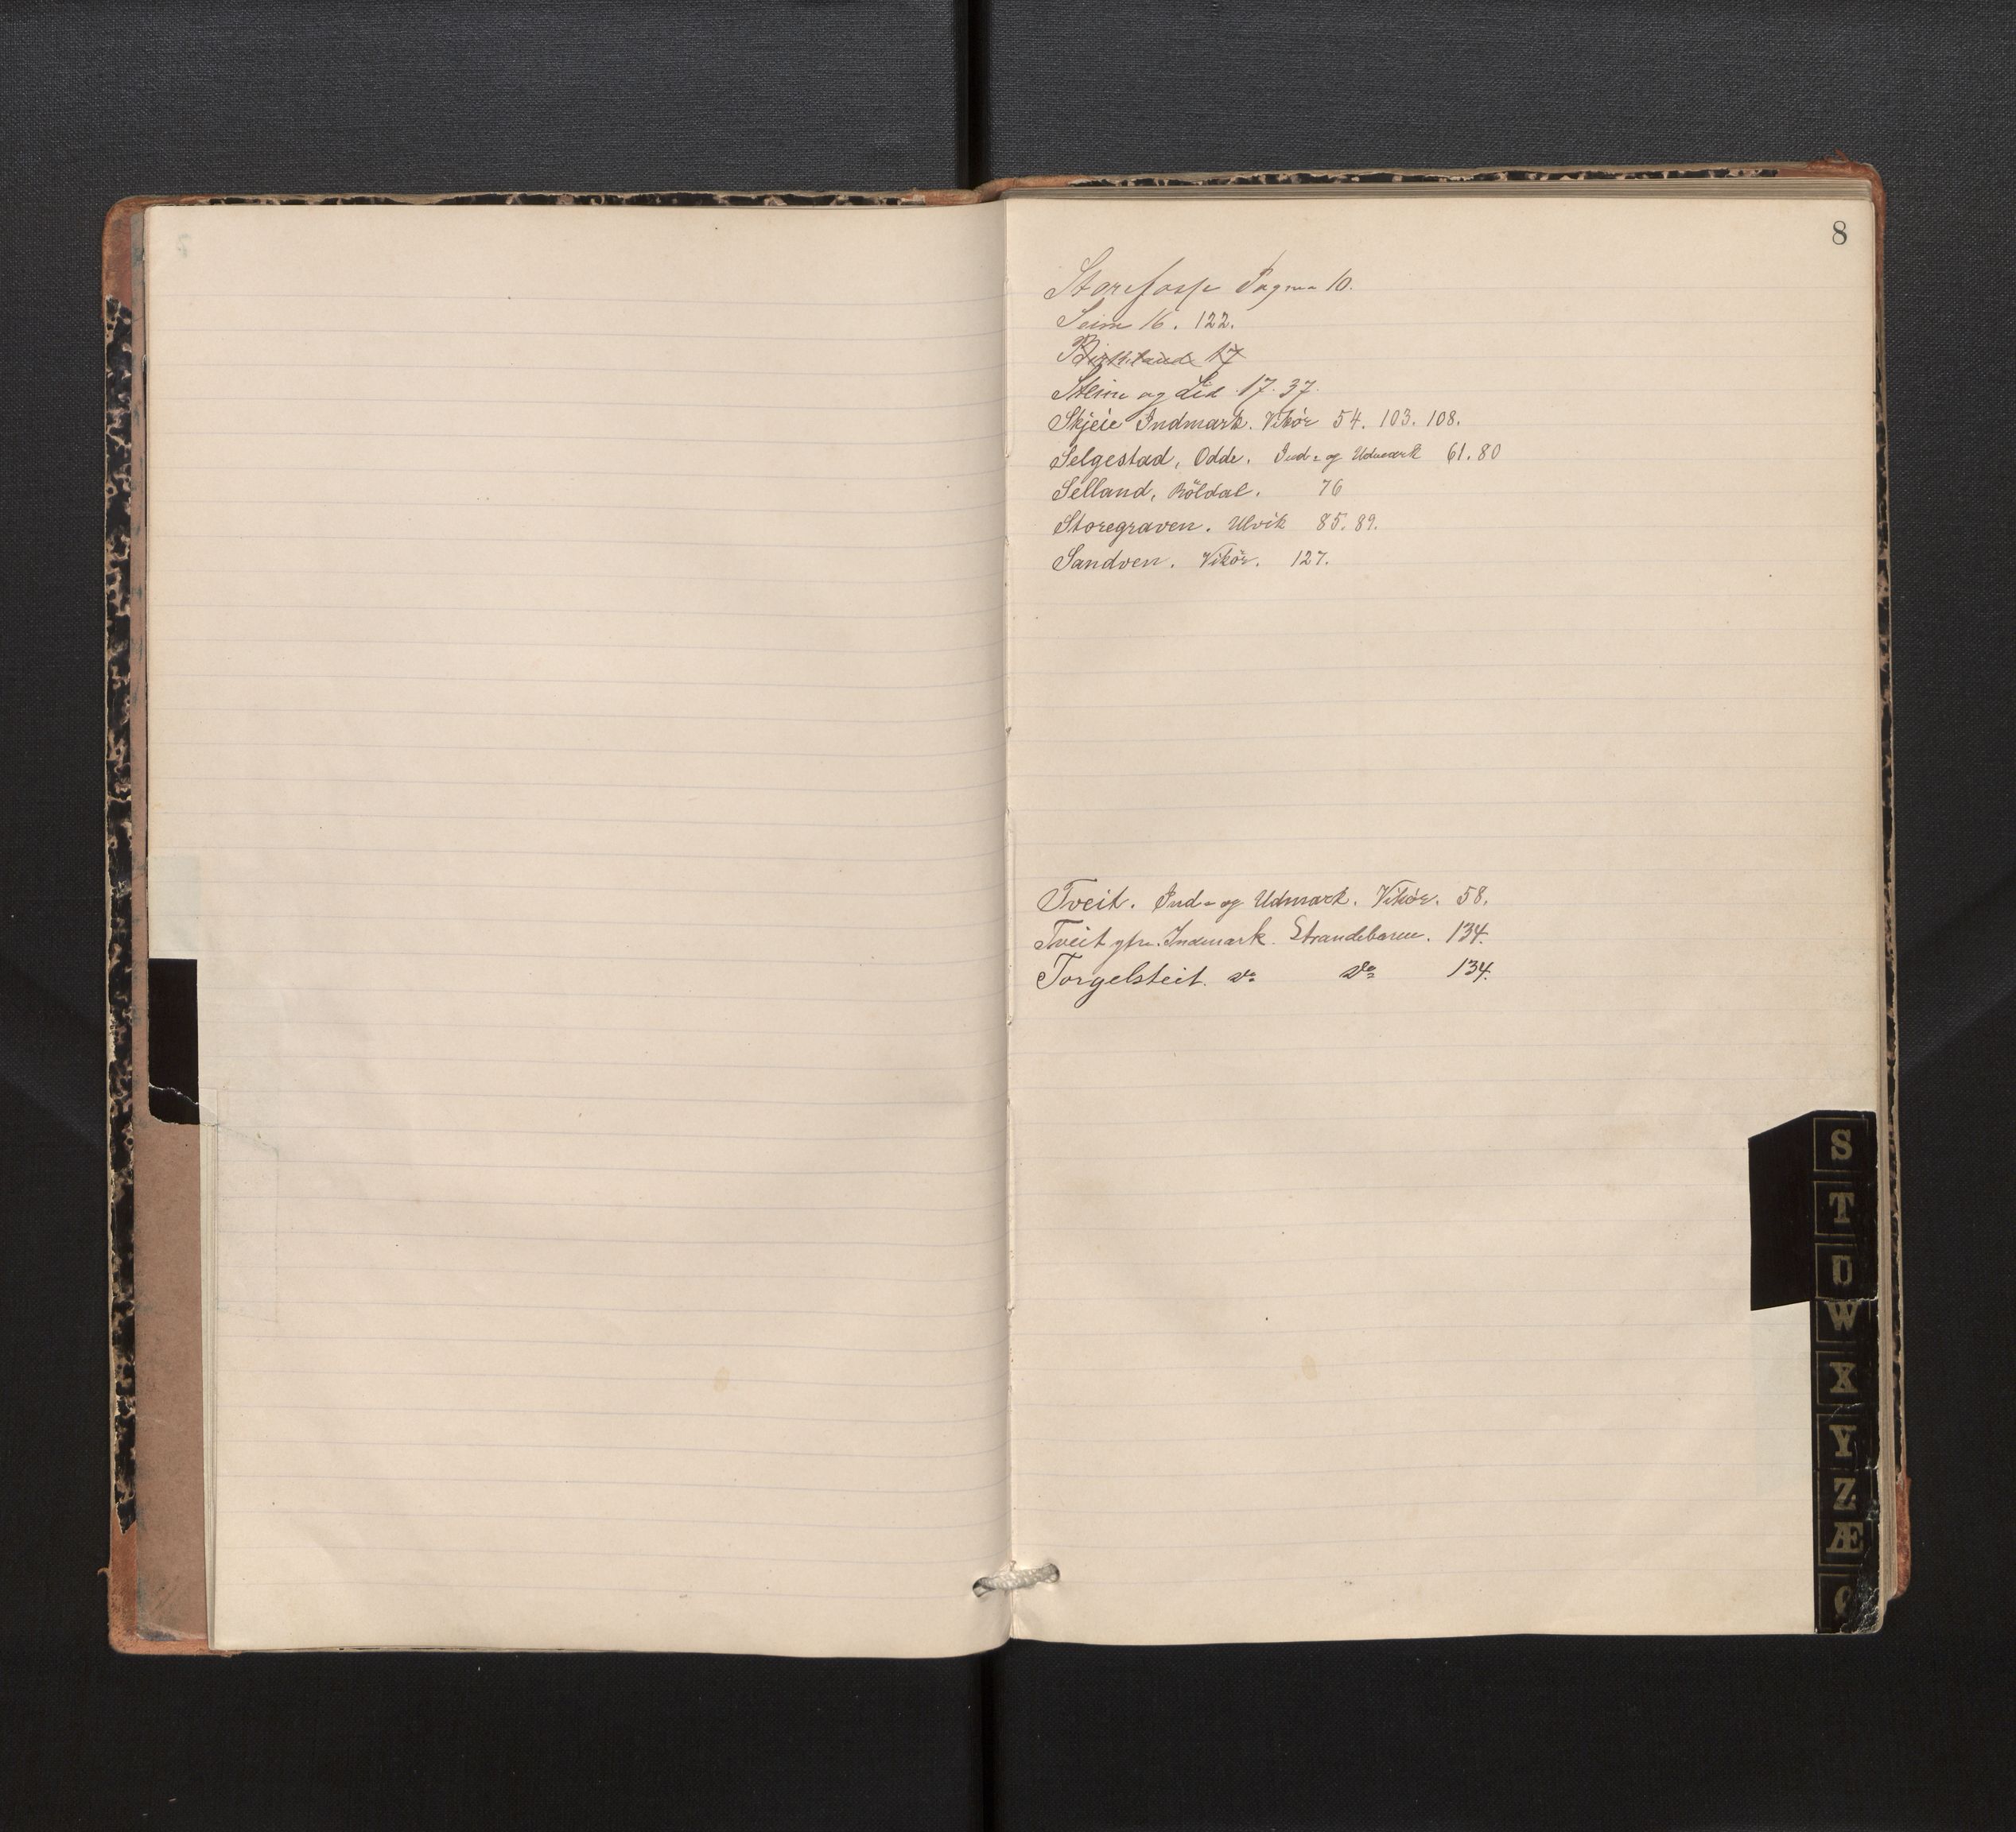 8
Storefosse Pagina 10.
Seim 16. 122.
Birkeland 17
Steine og Lid 17. 37.
Skjeie Indmark. Vikör 54. 103. 108.
Selgestad, Odde. Ind- og Udmark 61. 80
Selland, Röldal. 76
Storegraven. Ulvik 85. 89.
Sandven. Vikör. 127.
Tveit. Ind- og Udmark. Vikör. 58.
Tveit ytre. Indmark. Strandebarm. 134.
Torgelsteit. do do 134.
S
T
U
W
X
Y
Z
Æ